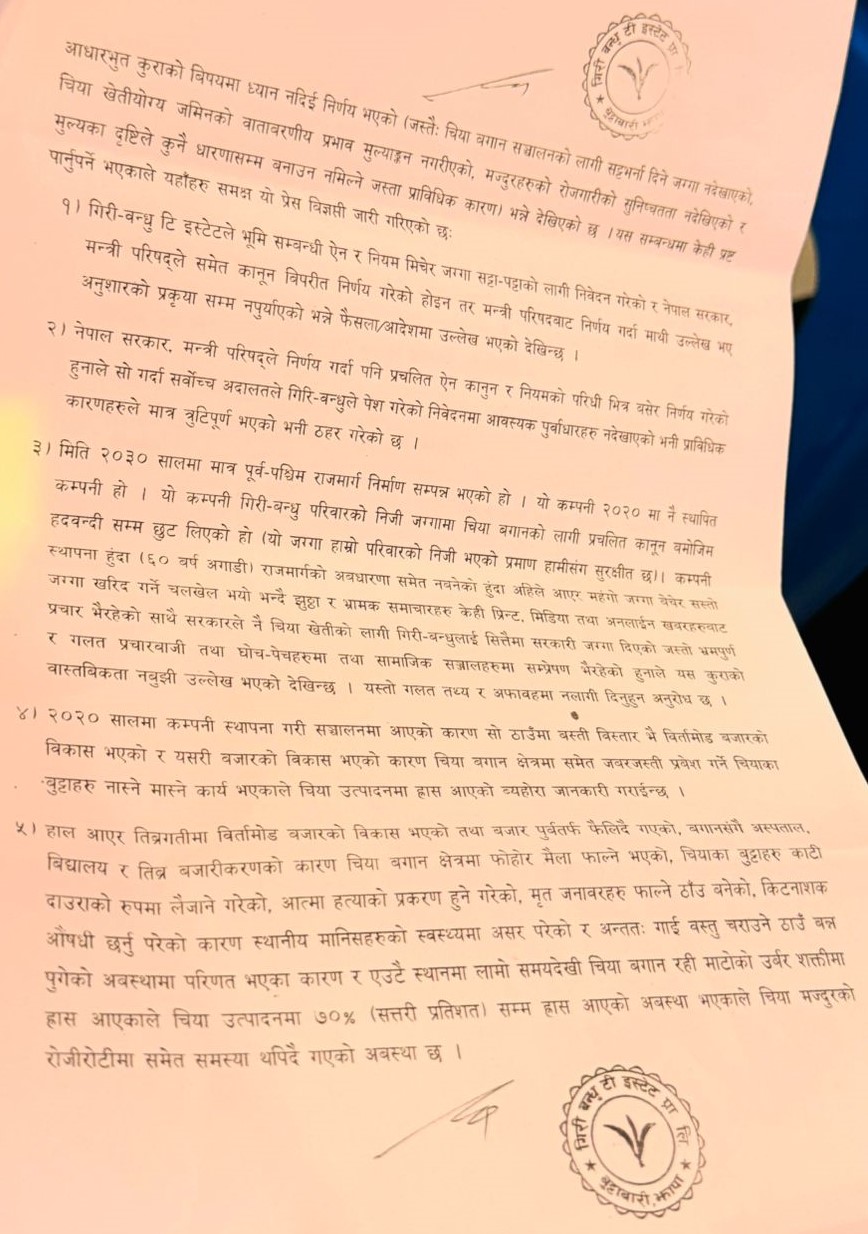 गिरी बन्धु टी इस्टेट प्रा
बुट्टाबारी
आधारभुत कुराको बिषयमा ध्यान नदिई निर्णय भएको (जस्तैः चिया बगान सञ्चालनको लागी सट्टभर्ना दिने जग्गा नदेखाएको,
चिया खेतीयोग्य जमिनको वातावरणीय प्रभाव मुल्याङ्कन नगरीएको, मज्दुरहरुको रोजगारीको सुनिष्चतता नदेखिएको र
मुल्यका दृष्टिले कुनै धारणासम्म बनाउन नमिल्ने जस्ता प्राविधिक कारण) भन्ने देखिएको छ । यस सम्बन्धमा केही प्रष्ट
पार्नुपर्ने भएकाले यहाँहरु समक्ष यो प्रेस विज्ञप्ती जारी गरिएको छः
१) गिरी-बन्धु टि इस्टेटले भूमि सम्बन्धी ऐन र नियम मिचेर जग्गा सट्टा-पट्टाको लागी निवेदन गरेको र नेपाल सरकार,
मन्त्री परिषद्ले समेत कानून विपरीत निर्णय गरेको होइन तर मन्त्री परिषदबाट निर्णय गर्दा माथी उल्लेख भए
अनुशारको प्रकृया सम्म नपुर्याएको भन्ने फैसला/आदेशमा उल्लेख भएको देखिन्छ ।
२) नेपाल सरकार, मन्त्री परिषद्ले निर्णय गर्दा पनि प्रचलित ऐन कानुन र नियमको परिधी भित्र बसेर निर्णय गरेको
हुनाले सो गर्दा सर्वोच्च अदालतले गिरि-बन्धुले पेश गरेको निवेदनमा आवस्यक पुर्वाधारहरु नदेखाएको भनी प्राविधिक
कारणहरुले मात्र त्रुटिपूर्ण भएको भनी ठहर गरेको छ ।
३) मिति २०३० सालमा मात्र पूर्व-पश्चिम राजमार्ग निर्माण सम्पन्न भएको हो । यो कम्पनी २०२० मा नै स्थापित
कम्पनी हो । यो कम्पनी गिरी-बन्धु परिवारको निजी जग्गामा चिया बगानको लागी प्रचलित कानून बमोजिम
हदवन्दी सम्म छुट लिएको हो (यो जग्गा हाम्रो परिवारको निजी भएको प्रमाण हामीसंग सुरक्षीत छ)। कम्पनी
स्थापना हुंदा (६० वर्ष अगाडी) राजमार्गको अवधारणा समेत नबनेको हुंदा अहिले आएर महंगो जग्गा बेचेर सस्तो
जग्गा खरिद गर्ने चलखेल भयो भन्दै झुठ्ठा र भ्रामक समाचारहरु केही प्रिन्ट, मिडिया तथा अनलाईन खबरहरुबाट
प्रचार भैरहेको साथै सरकारले नै चिया खेतीको लागी गिरी-बन्धुलाई सित्तैमा सरकारी जग्गा दिएको जस्तो भ्रमपुर्ण
र गलत प्रचारबाजी तथा घोच-पेचहरुमा तथा सामाजिक सञ्जालहरुमा सम्प्रेषण भैरहेको हुनाले यस कुराको
वास्तबिकता नबुझी उल्लेख भएको देखिन्छ । यस्तो गलत तथ्य र अफावहमा नलागी दिनुहुन अनुरोध छ ।
४) २०२० सालमा कम्पनी स्थापना गरी सञ्चालनमा आएको कारण सो ठाउँमा बस्ती विस्तार भै विर्तामोड बजारको
विकास भएको र यसरी बजारको विकास भएको कारण चिया बगान क्षेत्रमा समेत जबरजस्ती प्रवेश गर्ने चियाका
बुट्टाहरु नास्ने मास्ने कार्य भएकाले चिया उत्पादनमा ह्रास आएको व्यहोरा जानकारी गराईन्छ ।
५) हाल आएर तिब्रगतीमा विर्तामोड बजारको विकास भएको तथा बजार पुर्वतर्फ फैलिदै गएको, बगानसंगै अस्पताल,
बिद्यालय र तिब्र बजारीकरणको कारण चिया बगान क्षेत्रमा फोहोर मैला फाल्ने भएको, चियाका बुट्टाहरु काटी
दाउराको रुपमा लैजाने गरेको, आत्मा हत्याको प्रकरण हुने गरेको, मृत जनावरहरु फाल्ने ठाँउ बनेको, किटनाशक
औषधी छर्नु परेको कारण स्थानीय मानिसहरुको स्वस्थ्यमा असर परेको र अन्ततः गाई वस्तु चराउने ठाउँ बन्न
पुगेको अवस्थामा परिणत भएका कारण र एउटै स्थानमा लामो समयदेखी चिया बगान रही माटोको उर्बर शक्तीमा
ह्रास आएकाले चिया उत्पादनमा ७०% (सत्तरी प्रतिशत) सम्म ह्रास आएको अबस्था भएकाले चिया मज्दुरको
रोजीरोटीमा समेत समस्या थपिदै गएको अवस्था छ ।
गिरी बन्धु टी इस्टेट प्रा लि
बुट्टाबारी, झापा